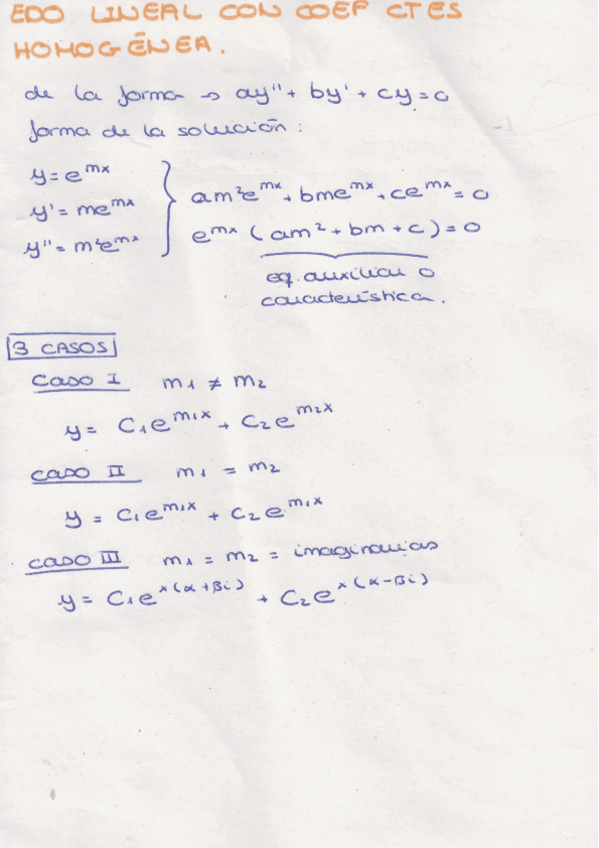 EDO LINEAL CON COEF CTES
HOMOGÉNEA.
de la forma → ay'' + by' + cy = 0
forma de la solución :
y = e^{mx}
y' = me^{mx}
y'' = m²e^{mx}
am²e^{mx} + bme^{mx} + ce^{mx} = 0
e^{mx} (am² + bm + c) = 0
eq. auxiliar o
característica.
3 CASOS
CASO I m₁ ≠ m₂
y = C₁e^{m₁x} + C₂e^{m₂x}
CASO II m₁ = m₂
y = C₁e^{m₁x} + C₂e^{m₁x}
CASO III m₁ = m₂ = imaginarias
y = C₁e^{x(α+βi)} + C₂e^{x(α-βi)}